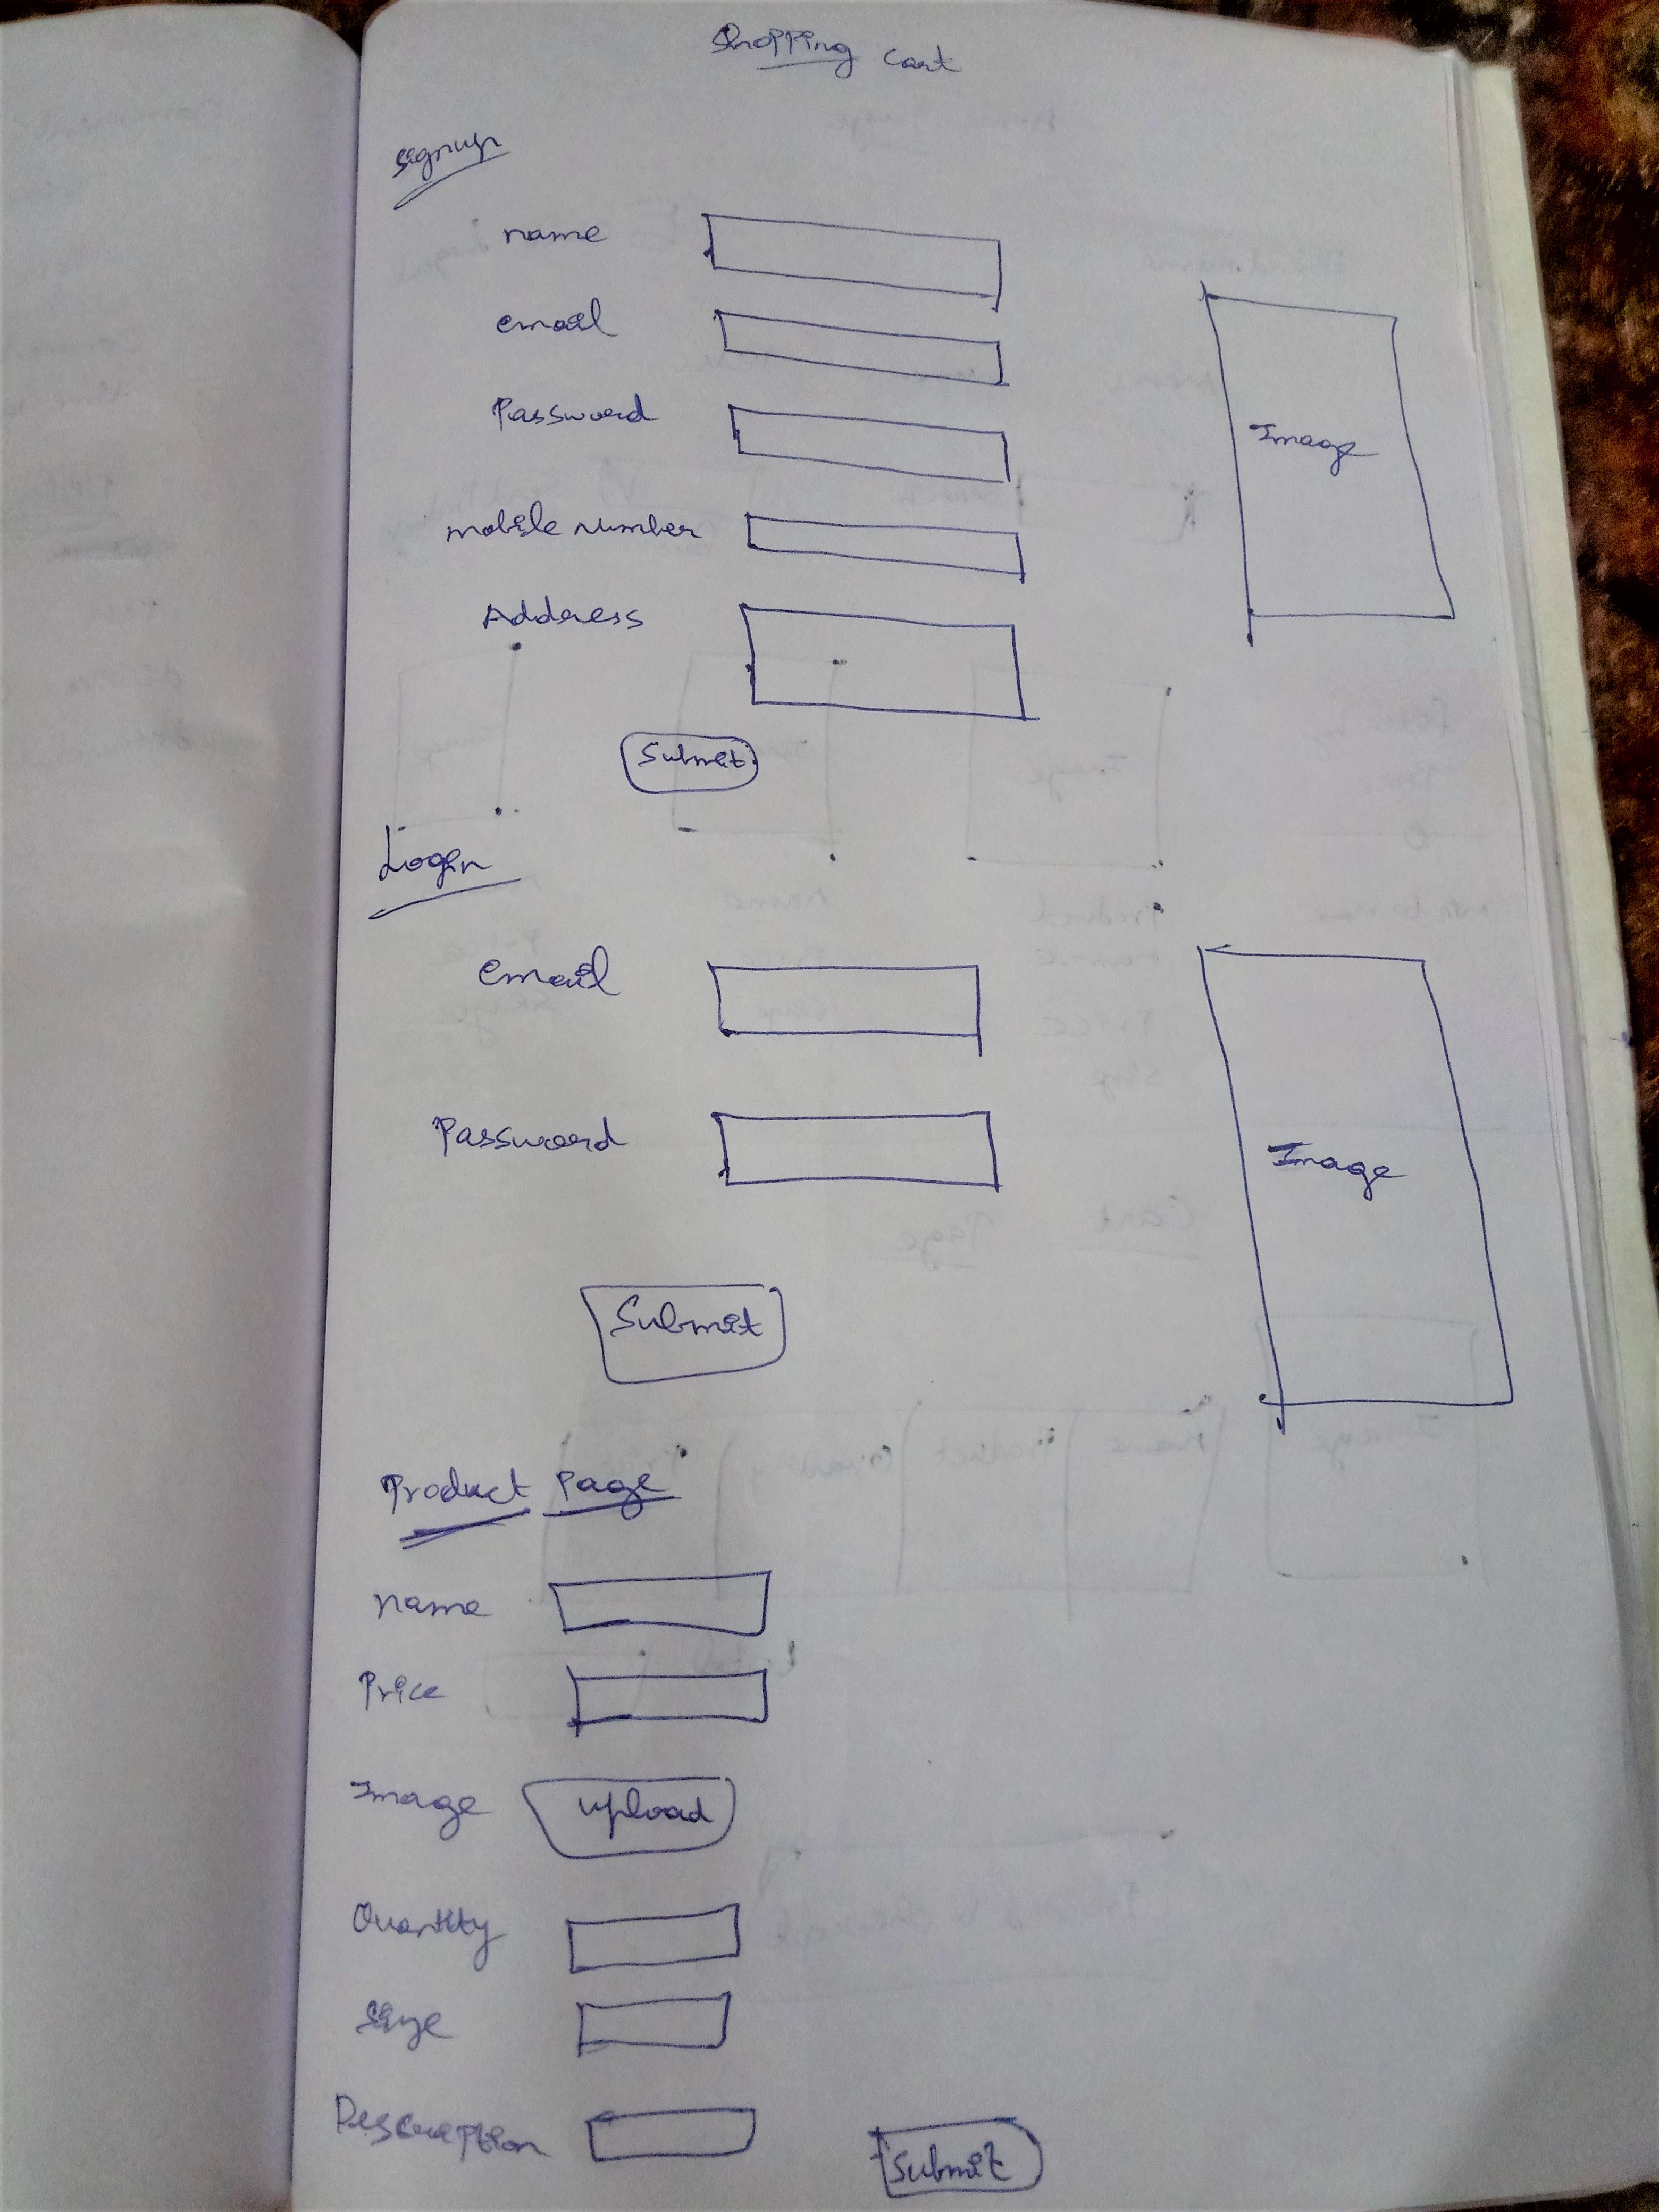 Shopping Cart
Signup
name
email
Password
mobile number
Image
Address
Submit
Login
email
Password
Image
Submit
Product Page
name
Price
Image upload
Quantity
Size
Description
Submit